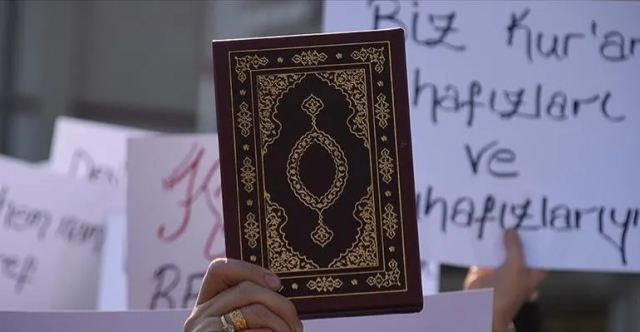 Biz Kur'an
hafızları
ve
uhafızlarıy
hem nam
ref
BE